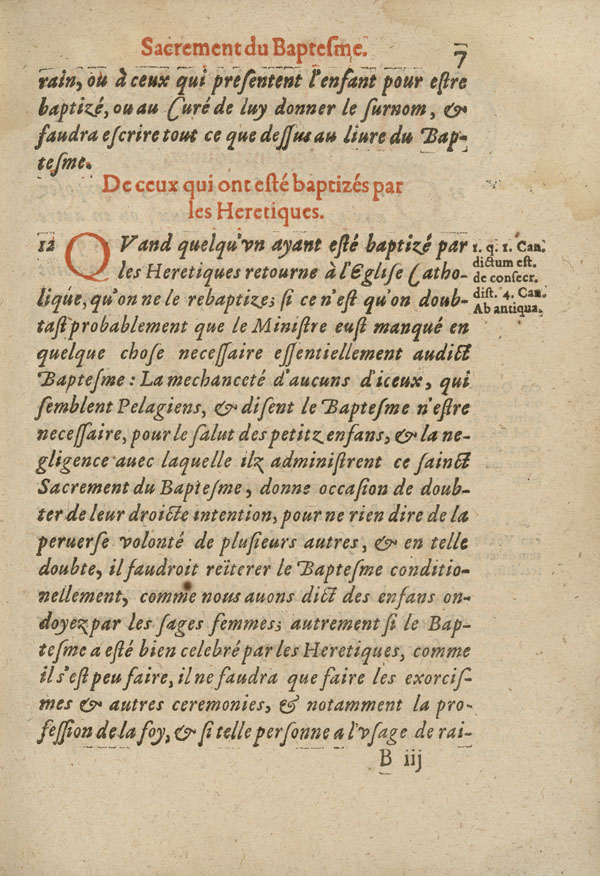 Sacrement du Baptesme. 7
rain, ou à ceux qui presentent l'enfant pour estre
baptizé, ou au Curé de luy donner le surnom, &
faudra escrire tout ce que dessus au liure du Bap-
tesme.
De ceux qui ont esté baptizés par
les Heretiques.
12 QVand quelqu'vn ayant esté baptizé par
les Heretiques retourne à l'Eglise Catho-
lique, qu'on ne le rebaptize; si ce n'est qu'on doub-
tast probablement que le Ministre eust manqué en
quelque chose necessaire essentiellement audict
Baptesme: La mechanceté d'aucuns d'iceux, qui
semblent Pelagiens, & disent le Baptesme n'estre
necessaire, pour le salut des petitz enfans, & la ne-
gligence auec laquelle ilz administrent ce sainct
Sacrement du Baptesme, donne occasion de doub-
ter de leur droicte intention, pour ne rien dire de la
peruerse volonté de plusieurs autres, & en telle
doubte, il faudroit reïterer le Baptesme conditio-
nellement, comme nous auons dict des enfans on-
doyez par les sages femmes; autrement si le Bap-
tesme a esté bien celebré par les Heretiques, comme
il s'est peu faire, il ne faudra que faire les exorcis-
mes & autres ceremonies, & notamment la pro-
fession de la foy, & si telle personne a l'vsage de rai-
B iij
1. q. 1. Can.
dictum est.
de consecr.
dist. 4. Can.
Ab antiqua.